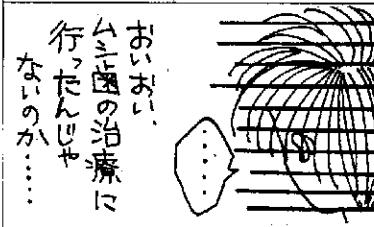 おいおい、
ムシ歯の治療に
行ったんじゃ
ないのか……
……